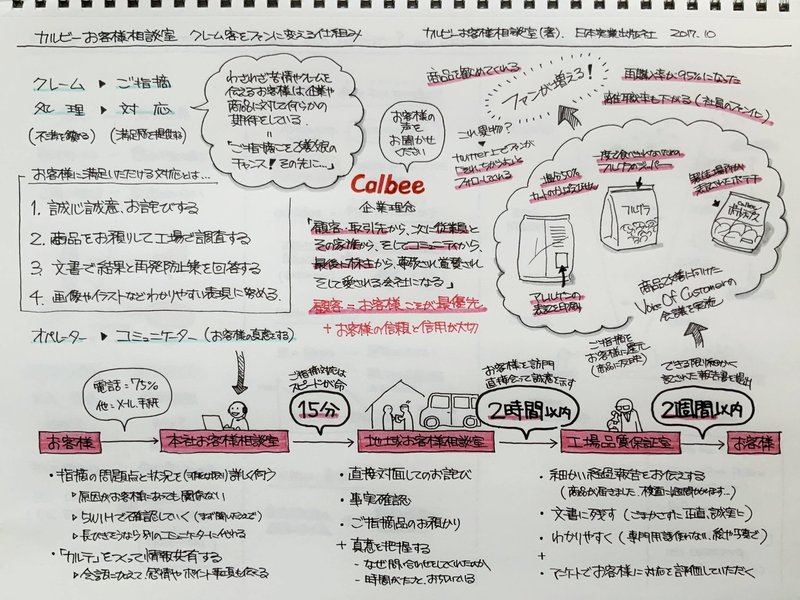 カルビーお客様相談室 クレーム客をファンに変える仕組み
カルビーお客様相談室(著). 日本実業出版社 2017.10
クレーム ▶ ご指摘
処理 ▶ 対応
(満足度を提供する)
わざわざ苦情やクレームを
伝えるお客様は、企業や
商品に対して何らかの
期待をしている.
=
チャンス! その先に…」
お客様
の声を
お聞かせ
ください
商品を勧めてくれる
ファンが増える!
再購入率が95%になった
離職率も下がる(社員のファン化)
これ異物?
お客様に満足いただける対応とは…
1. 誠心誠意、お詫びする
2. 商品をお預りして工場で調査する
3. 文書で結果と再発防止策を回答する
4. 画像やイラストなどわかりやすい表現に努める.
Calbee
企業理念
「顧客・取引先から、次に従業員と
その家族から、そしてコミュニティから、
最後に株主から、尊敬され賞賛され
そして愛される会社になる」
顧客=お客様ごとが最優先
+お客様の信頼と信用が大切
塩分50%
フルグラ
Calbee
アレルゲンの
表記を印刷
商品改善に向けた
Voice Of Customerの
会議を実施
オペレーター ▶ コミュニケーター (お客様の真意とする)
電話=75%
他=メール.手紙
ご指摘対応は
スピードが命
15分
お客様を訪問
直接会って誠意を示す
2時間以内
ご指摘を
お客様に還元
(商品に反映)
できる限り細かく
記された報告書を提出
2週間以内
お客様
本社お客様相談室
地域お客様相談室
工場品質保証室
お客様
・指摘の問題点と状況を 詳しく伺う
▶原因がお客様にあっても関係ない
▶5W1Hで確認していく(まず聞いたうえで)
▶長びきそうなら別のコミュニケーターに代わる
・「カルテ」をつくって情報共有する
・直接対面してのお詫び
・事実確認
・ご指摘品のお預かり
+ 真意を把握する
- なぜ問い合わせをしてくれたのか
- 時間がたつと、おちついている
・細かい経過報告をお伝えする
・文書に残す(ごまかさずに正直、誠実に)
・わかりやすく(専門用語使わない、絵や写真で)
+
・アンケートでお客様に対応を評価していただく